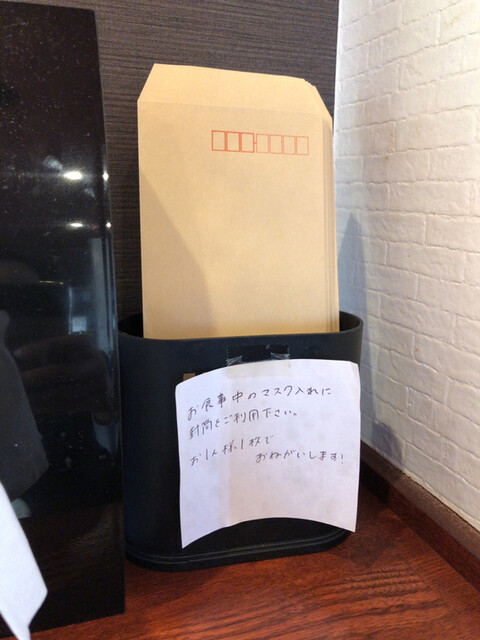 お食事中のマスク入れに
封筒をご利用下さい。
お1人様、1枚で
おねがいします!